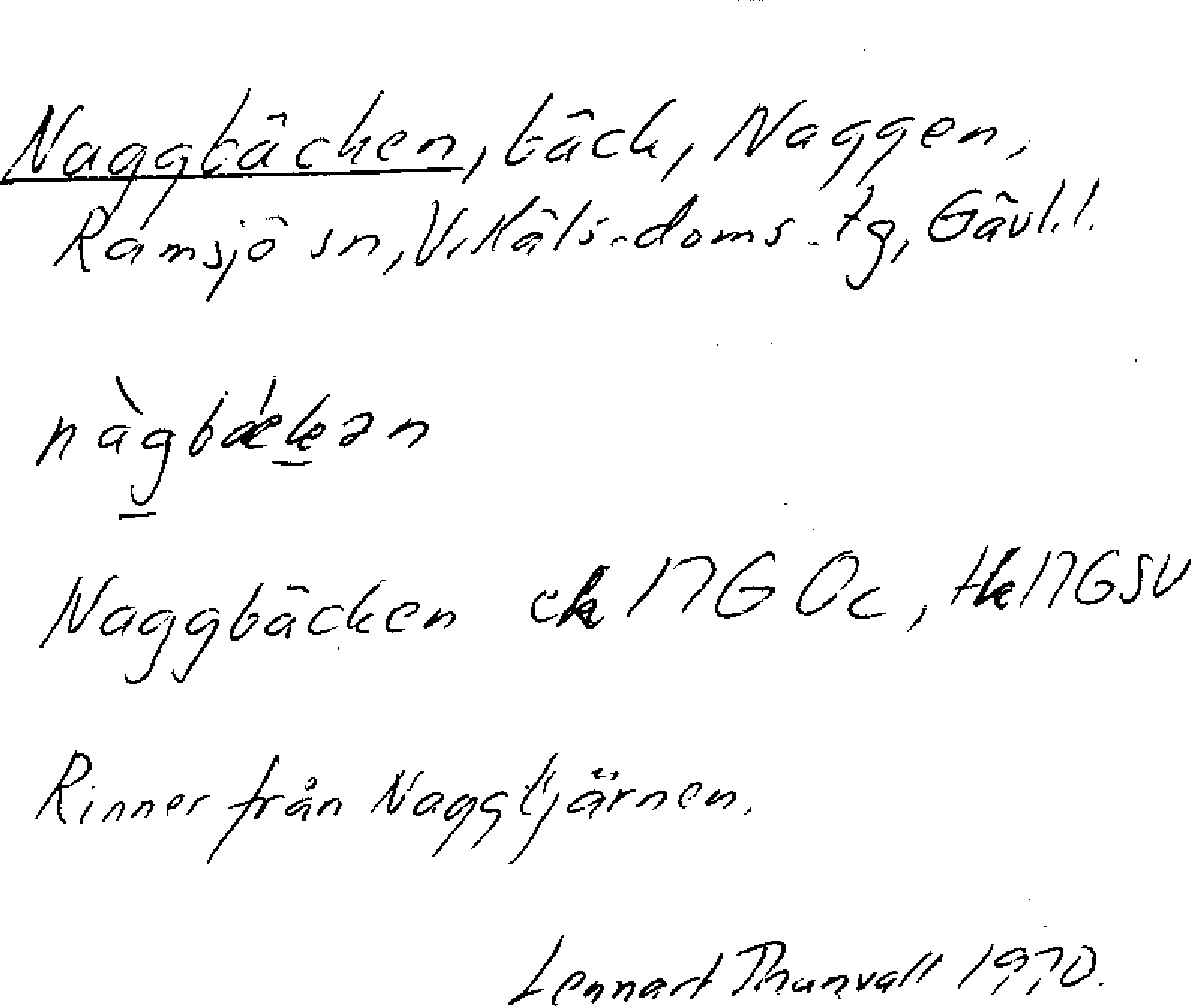 Naggbäcken, bäck, Naggen,
Ramsjö sn, V. Häls. doms. tg, Gävl.l.
nàgbǽkən
Naggbäcken ek 17G 0c, tk 17GSV
Rinner från Naggtjärnen.
Lennart Thunvall 1970.